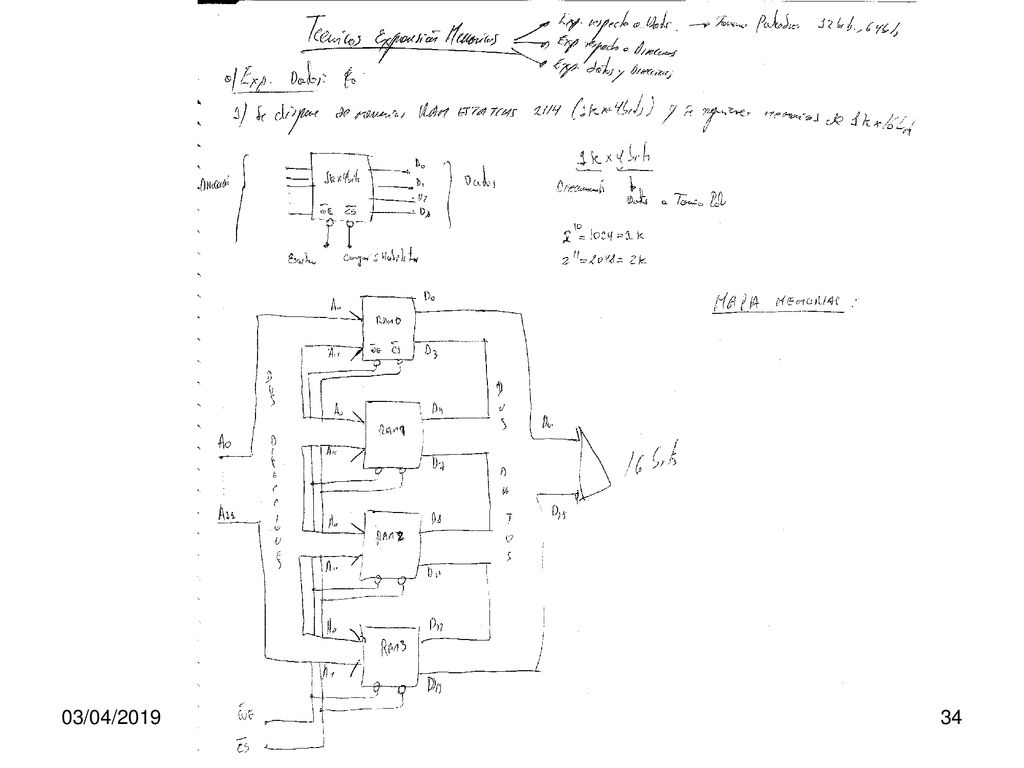 Tecnicas Expansión Memorias
Exp. respecto a Datos. → Tamaño Palabra 32bit., 64b
Exp respecto a Direcciones
Exp. datos y Direcciones
a) Exp. Datos:
1) Se dispone de memorias RAM ESTATICAS 2114 (1k×4bits) y se requieren memorias de 1k×16bit
Dirección
1k×4bits
D0
D1
D2
D3
WE CS
Datos
1k × 4 bits
Direcciones
Datos o Tamaño Pal
2^10=1024=1k
2^11=2048=2k
MAPA MEMORIAS :
A0
RAM0
D0
A11
WE CS
D3
A0
RAM1
D4
A11
A0
RAM2
D8
A11
D11
A0
RAM3
D12
A11
D15
A0
A11
BUS DIRECCIONES
BUS DATOS
D0
D15
16 bits
WE
CS
03/04/2019
34